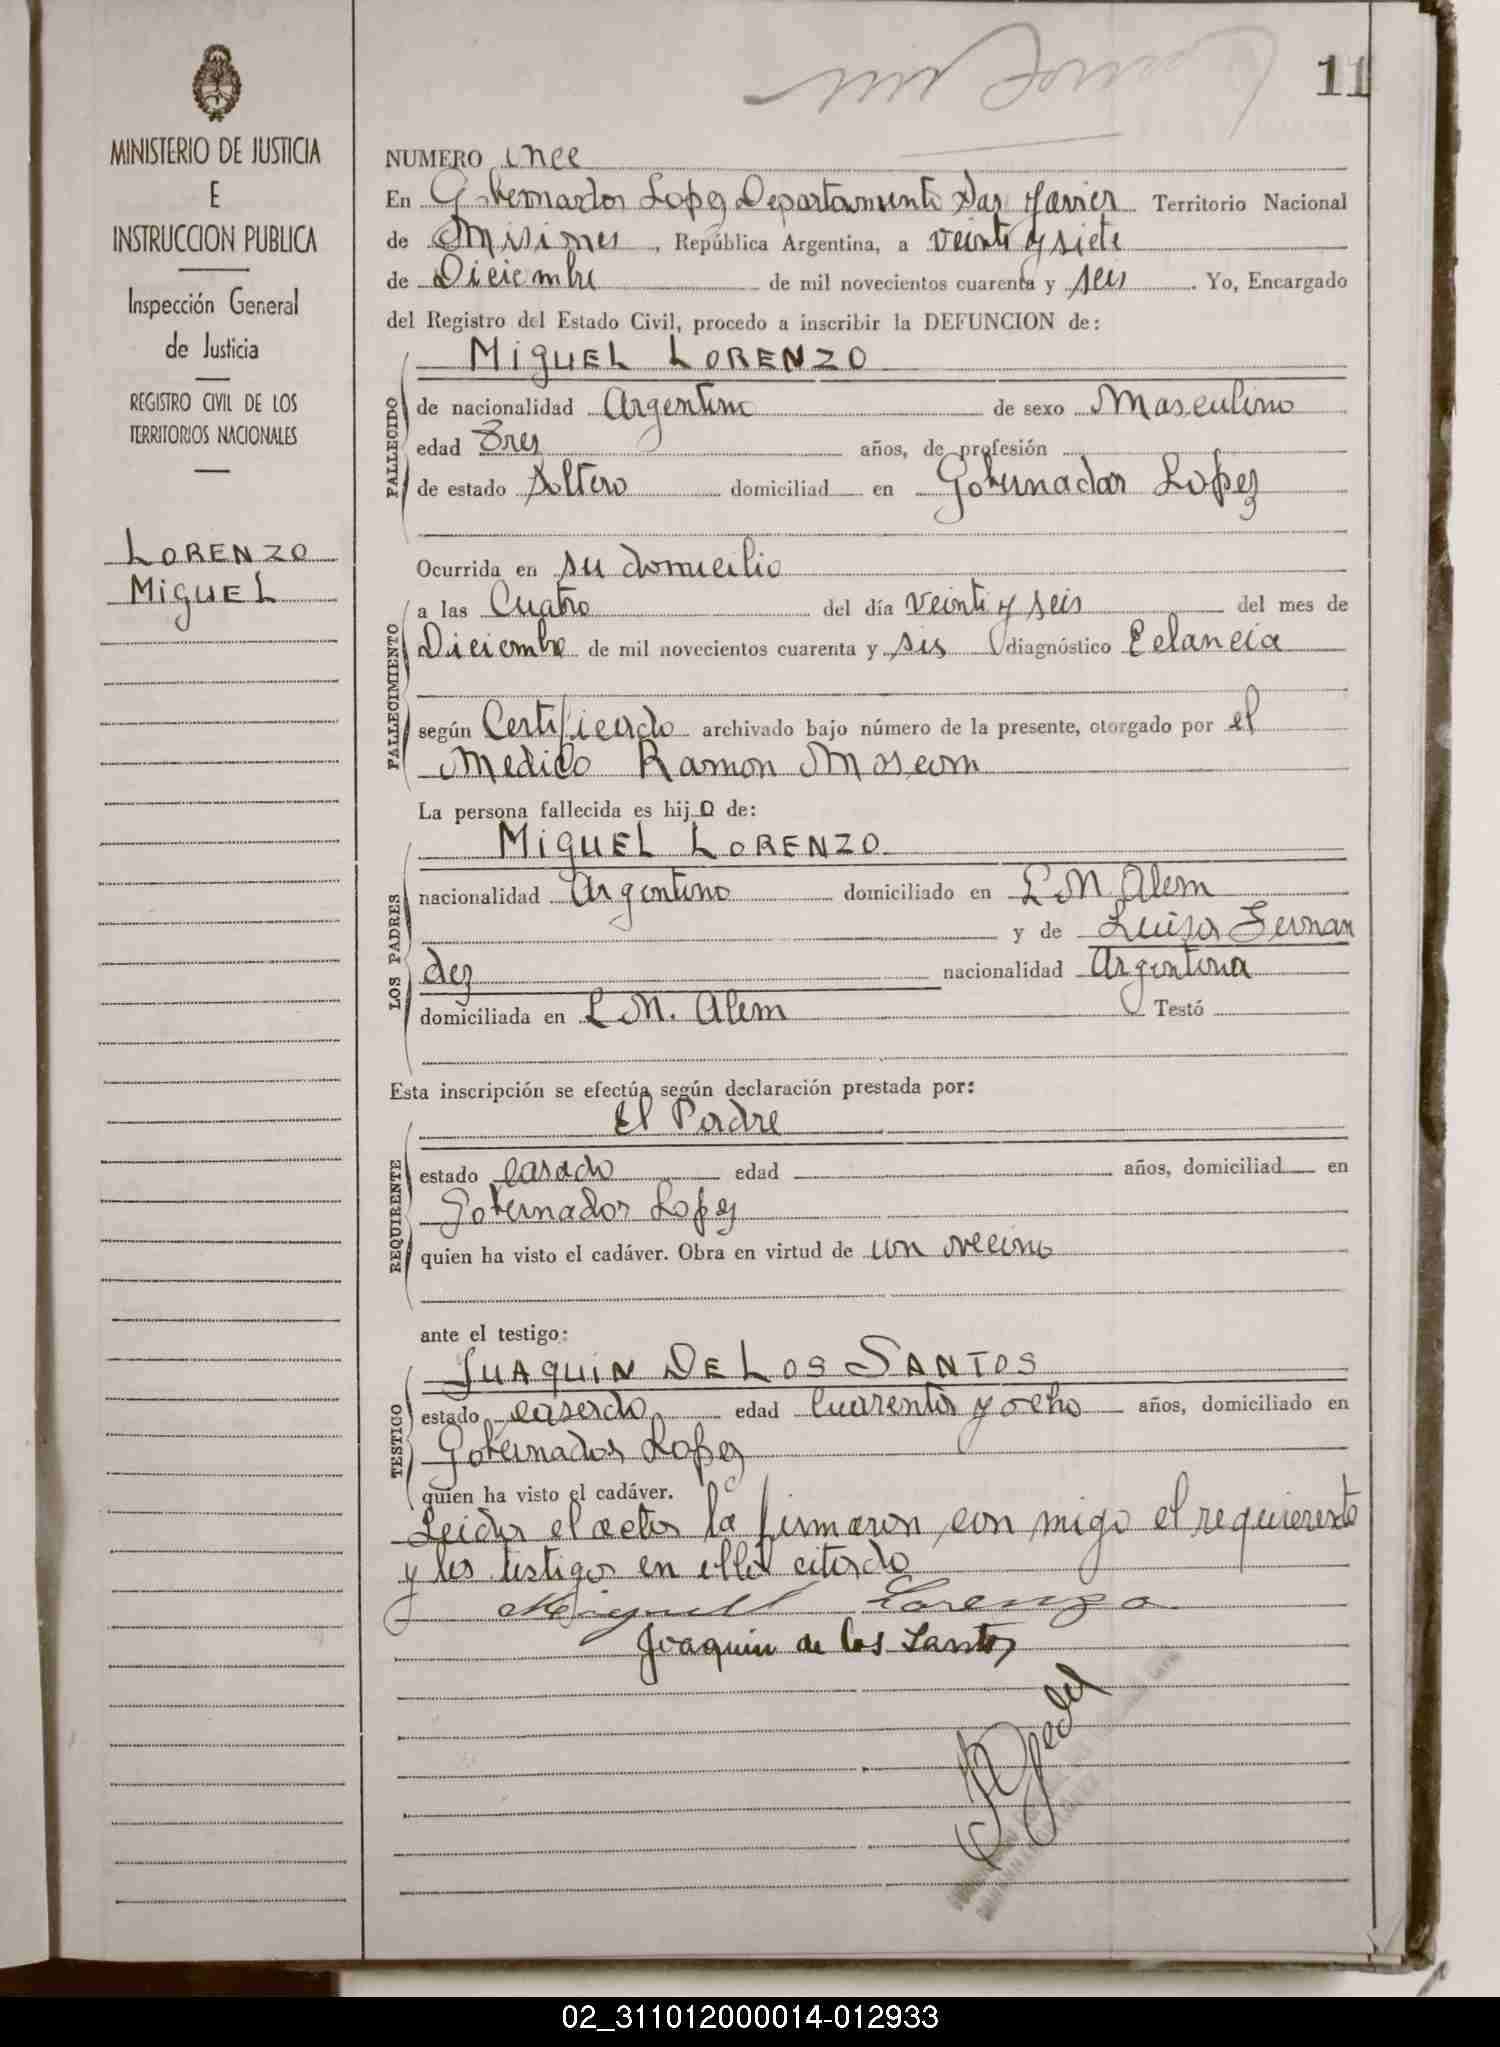 11
MINISTERIO DE JUSTICIA
E
INSTRUCCION PUBLICA
Inspección General
de Justicia
REGISTRO CIVIL DE LOS
TERRITORIOS NACIONALES
LORENZO
MIGUEL
NUMERO once
En Gobernador Lopez Departamento San Javier Territorio Nacional
de Misiones, República Argentina, a veinte y siete
de Diciembre de mil novecientos cuarenta y seis. Yo, Encargado
del Registro del Estado Civil, procedo a inscribir la DEFUNCION de:
FALLECIDO
MIGUEL LORENZO
de nacionalidad Argentino de sexo Masculino
edad Tres años, de profesión
de estado Soltero domiciliad en Gobernador Lopez
Ocurrida en su domicilio
FALLECIMIENTO
a las Cuatro del día veinte y seis del mes de
Diciembre de mil novecientos cuarenta y sis diagnóstico Eclancia
según Certificado archivado bajo número de la presente, otorgado por el
Medico Ramon
La persona fallecida es hijo de:
LOS PADRES
MIGUEL LORENZO
nacionalidad Argentino domiciliado en L N. Alem
y de Luisa Fernan
dez nacionalidad Argentina
domiciliada en L N. Alem Testó
Esta inscripción se efectúa según declaración prestada por:
REQUIRENTE
El Padre
estado casado edad años, domiciliad en
Gobernador Lopez
quien ha visto el cadáver. Obra en virtud de un vecino
ante el testigo:
TESTIGO
JUAQUIN DE LOS SANTOS
estado casado edad cuarenta y ocho años, domiciliado en
Gobernador Lopez
quien ha visto el cadáver.
Leida el acta la firmaron con migo el requierente
y los testigos en ella citado
Miguel Lorenzo
Joaquin de los Santos
02_311012000014-012933